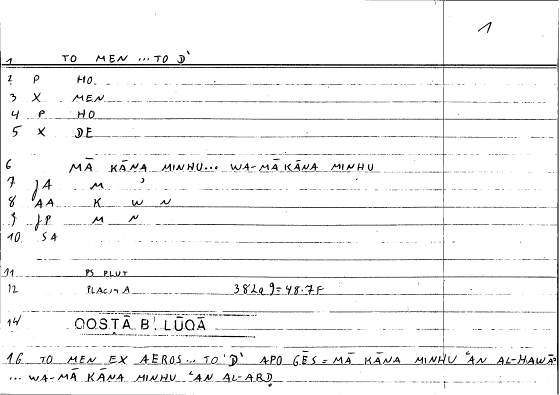 1
1 TO MEN ... TO D'
2 P HO
3 X MEN
4 P HO
5 X DE
6 MĀ KĀNA MINHU... WA-MĀ KĀNA MINHU
7 JA M '
8 AA K W N
9 JP M N
10 SA
11 PS PLUT
12 PLACITA 382a9=48.7F
14 QOSṬĀ B. LŪQĀ
16 TO MEN EX AEROS... TO 'D' APO GĒS = MĀ KĀNA MINHU ʿAN AL-HAWĀʾ
... WA-MĀ KĀNA MINHU ʿAN AL-ARḌ